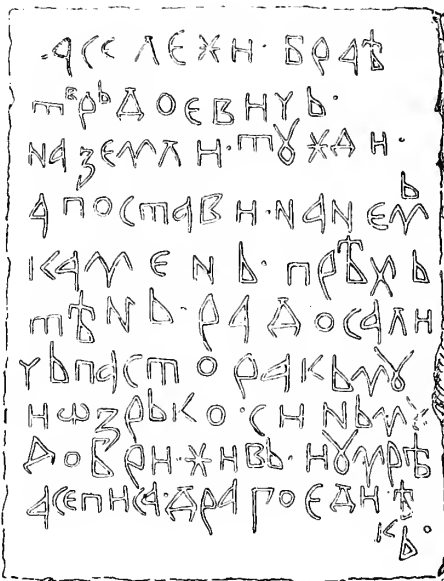 ·асє лєжи· братѣ
твръдоєвичь·
на зємли·тꙋжди·
а постави·на нємь
камєнь·прѣхь
тѣнь·радосали
чь пасторакь мꙋ
и ѡзрько·синь мꙋ
добри·живь·и ꙋмрѣ
а сє писа·драгоє диѣ
кь·